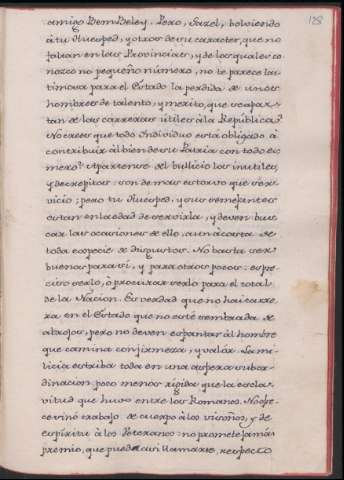 128
amigo Ben-Beley. Pero, Gazel, bolviendo
à tu Huesped, y otros de su caracter, que no
faltan en las Provincias, y de los quales co
nozco no pequeño número, no te parece las-
timosa para el Estado la perdida de unos
hombres de talento, y merito, que se apar-
tan de las carreras útiles à la República?
No crees que todo Individuo está obligado à
contribuir al bien de su Patria con todo es-
mero? Apartense del bullicio los inutiles,
y decrepitos: son de mas estorvo que ser-
vicio; pero tu Huesped, y sus semejantes
estan en la edad de servirla, y deven bus
car las ocasiones de ello, aun à costa de
toda especie de disgustos. No basta ser
buenos para sí, y para otros pocos: es pre
ciso serlo, ò procurar serlo para el total
de la Nacion. Es verdad que no hai carre
ra en el Estado que no esté sembrada de
abrojos, pero no deven espantar àl hombre
que camina con firmeza, y valór. La mi-
licia estriba toda en una aspera subor-
dinacion, poco menos rígida que la escla-
vitud que huvo entre los Romanos. No ofre
ce sinó trabajo de cuerpo à los visoños, y de
espíritu à los Veteranos: no promete jamás
premio, que pueda asi llamarse, respecto